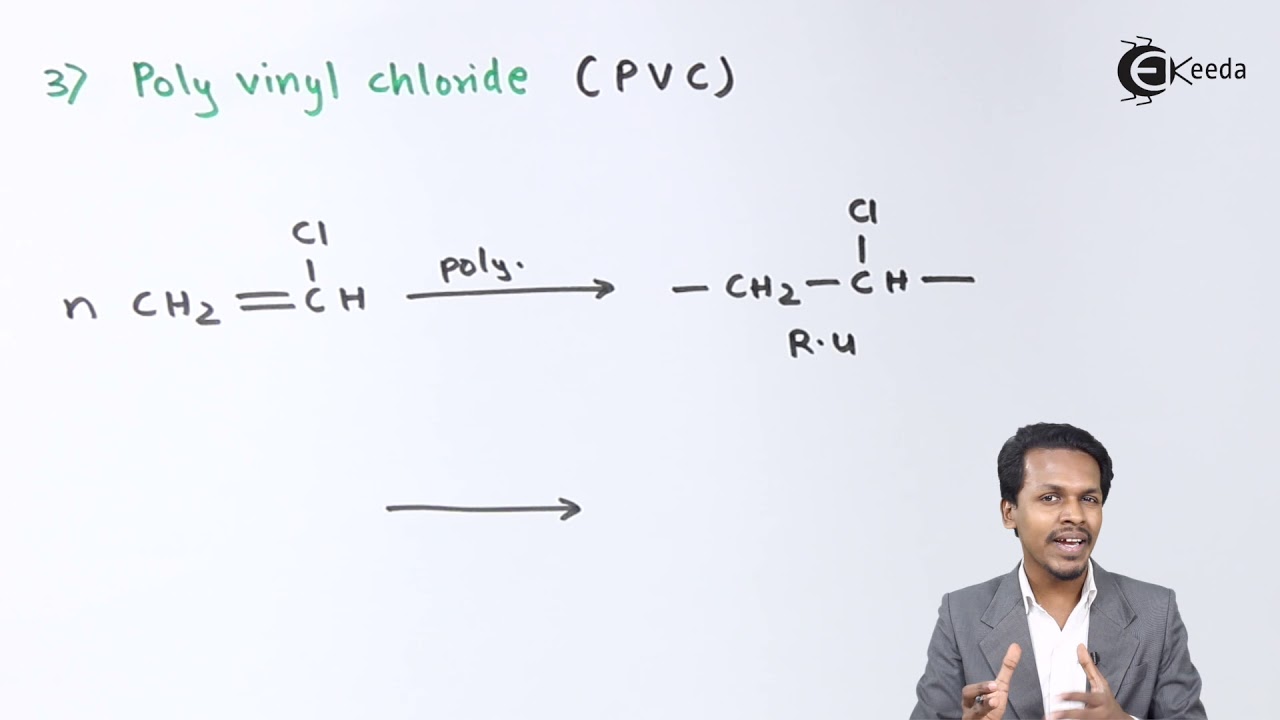 3) Poly vinyl chloride (PVC)
EKeeda
Cl Cl
n CH2 = CH poly. → – CH2 – CH –
R.U